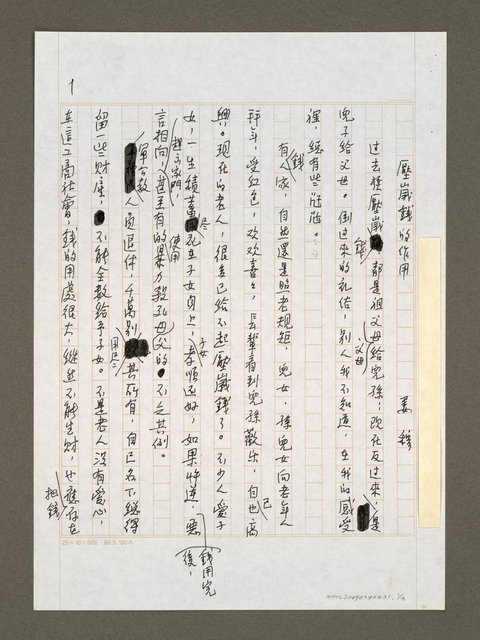 壓歲錢的作用
姜穆
過去俗壓歲錢，都是祖父母給兒孫；現在反過來，是
兒子給父母。倒過來的禮俗，別人我不知道，在我的感受
裡，總有些尷尬。
有錢人家，自然還是照老規矩，兒女、孫兒女向老年人
拜年，受紅包，歡歡喜喜，長輩看到兒孫歡樂，自己也高
興。現在的老人，很多已給不起壓歲錢了。不少人愛子
女，一生積蓄，盡花在子女身上，子女孝順還好，如果忤逆，惡
言相向，甚至有的暴力殺死父母的，不乏其例。
錢用完後，
趕出家門，
使用
軍公教人員退休，千萬別用盡其所有，自己名下總得
留一些財產，不能全數給予子女。不是老人沒有愛心，
在這工商社會，錢的用處很大，縱然不能生財，也應存在
把錢
1
25×10=300
NMTL20090240431, 1/3